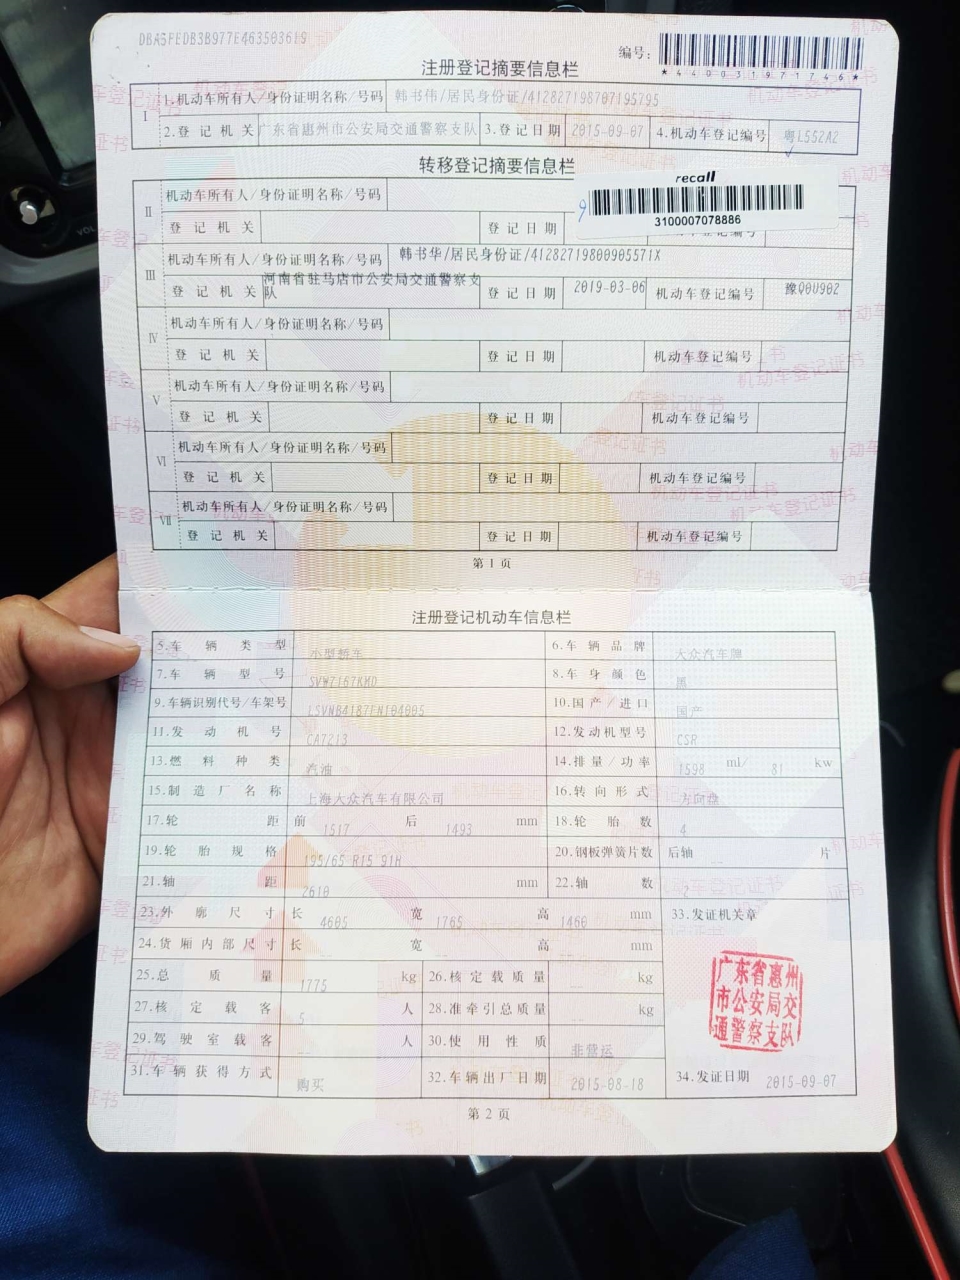 DBA5FEDB3B977E463503619
注册登记摘要信息栏
编号:
*440031971746*
I
1.机动车所有人/身份证明名称/号码 韩书伟/居民身份证/412827198707195795
2.登记机关 广东省惠州市公安局交通警察支队 3.登记日期 2015-09-07 4.机动车登记编号 粤L552A2
转移登记摘要信息栏
recall
3100007078886
II 机动车所有人/身份证明名称/号码
登记机关 登记日期
III 机动车所有人/身份证明名称/号码 韩书华/居民身份证/41282719800905571X
登记机关 河南省驻马店市公安局交通警察支队 登记日期 2019-03-06 机动车登记编号 豫Q0U902
IV 机动车所有人/身份证明名称/号码
登记机关 登记日期 机动车登记编号
V 机动车所有人/身份证明名称/号码
登记机关 登记日期 机动车登记编号
VI 机动车所有人/身份证明名称/号码
登记机关 登记日期 机动车登记编号
VII 机动车所有人/身份证明名称/号码
登记机关 登记日期 机动车登记编号
第1页
注册登记机动车信息栏
5.车辆类型 小型轿车 6.车辆品牌 大众汽车牌
7.车辆型号 SVW7167KMD 8.车身颜色 黑
9.车辆识别代号/车架号 LSVNB4187FN104005 10.国产/进口 国产
11.发动机号 CA7213 12.发动机型号 CSR
13.燃料种类 汽油 14.排量/功率 1598 ml/ 81 kw
15.制造厂名称 上海大众汽车有限公司 16.转向形式 方向盘
17.轮距 前 1517 后 1493 mm 18.轮胎数 4
19.轮胎规格 195/65 R15 91H 20.钢板弹簧片数 后轴 -- 片
21.轴距 2610 mm 22.轴数 2
23.外廓尺寸 长 4605 宽 1765 高 1460 mm 33.发证机关章
24.货厢内部尺寸 长 -- 宽 -- 高 -- mm
25.总质量 1775 kg 26.核定载质量 -- kg
27.核定载客 5 人 28.准牵引总质量 -- kg
29.驾驶室载客 -- 人 30.使用性质 非营运
31.车辆获得方式 购买 32.车辆出厂日期 2015-08-18 34.发证日期 2015-09-07
广东省惠州
市公安局交
通警察支队
第2页